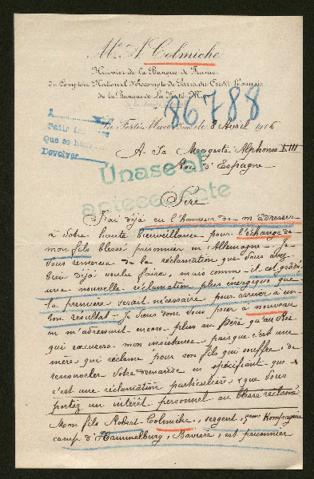 Me A. Colmiche
Huissier de la Banque de France
du Comptoir National d'Escompte de Paris du Crédit Lyonnais
de la Banque de La Ferté-Macé
86788
La Ferté-Macé le 8 Avril 1916
A
Que se
Devolver
A Sa Majesté Alphonse XIII
Roi d'Espagne
Unase al
antecedente
Sire
J'ai déjà eu l'honneur de m'adresser
à Votre haute bienveillance pour l'échange de
mon fils blessé prisonnier en Allemagne - Je
vous remercie de la réclamation que vous avez
bien déjà voulu faire, mais comme
une nouvelle réclamation plus énergique que
la première serait nécessaire pour arriver à un
bon résultat - Je viens donc vous prier à nouveau
m'adressant encore plus au Père qu'au Roi
qui excusera mon insistance, puisque c'est une
mère qui réclame pour son fils qui souffre, de
renouveler votre demande en spécifiant que
c'est une réclamation particulière, que vous
portez un intérêt personnel au blessé réclamé
Mon fils Robert Colmiche, sergent, 5eme Kompagnie
camp d'Hammelburg, Bavière, est prisonnier